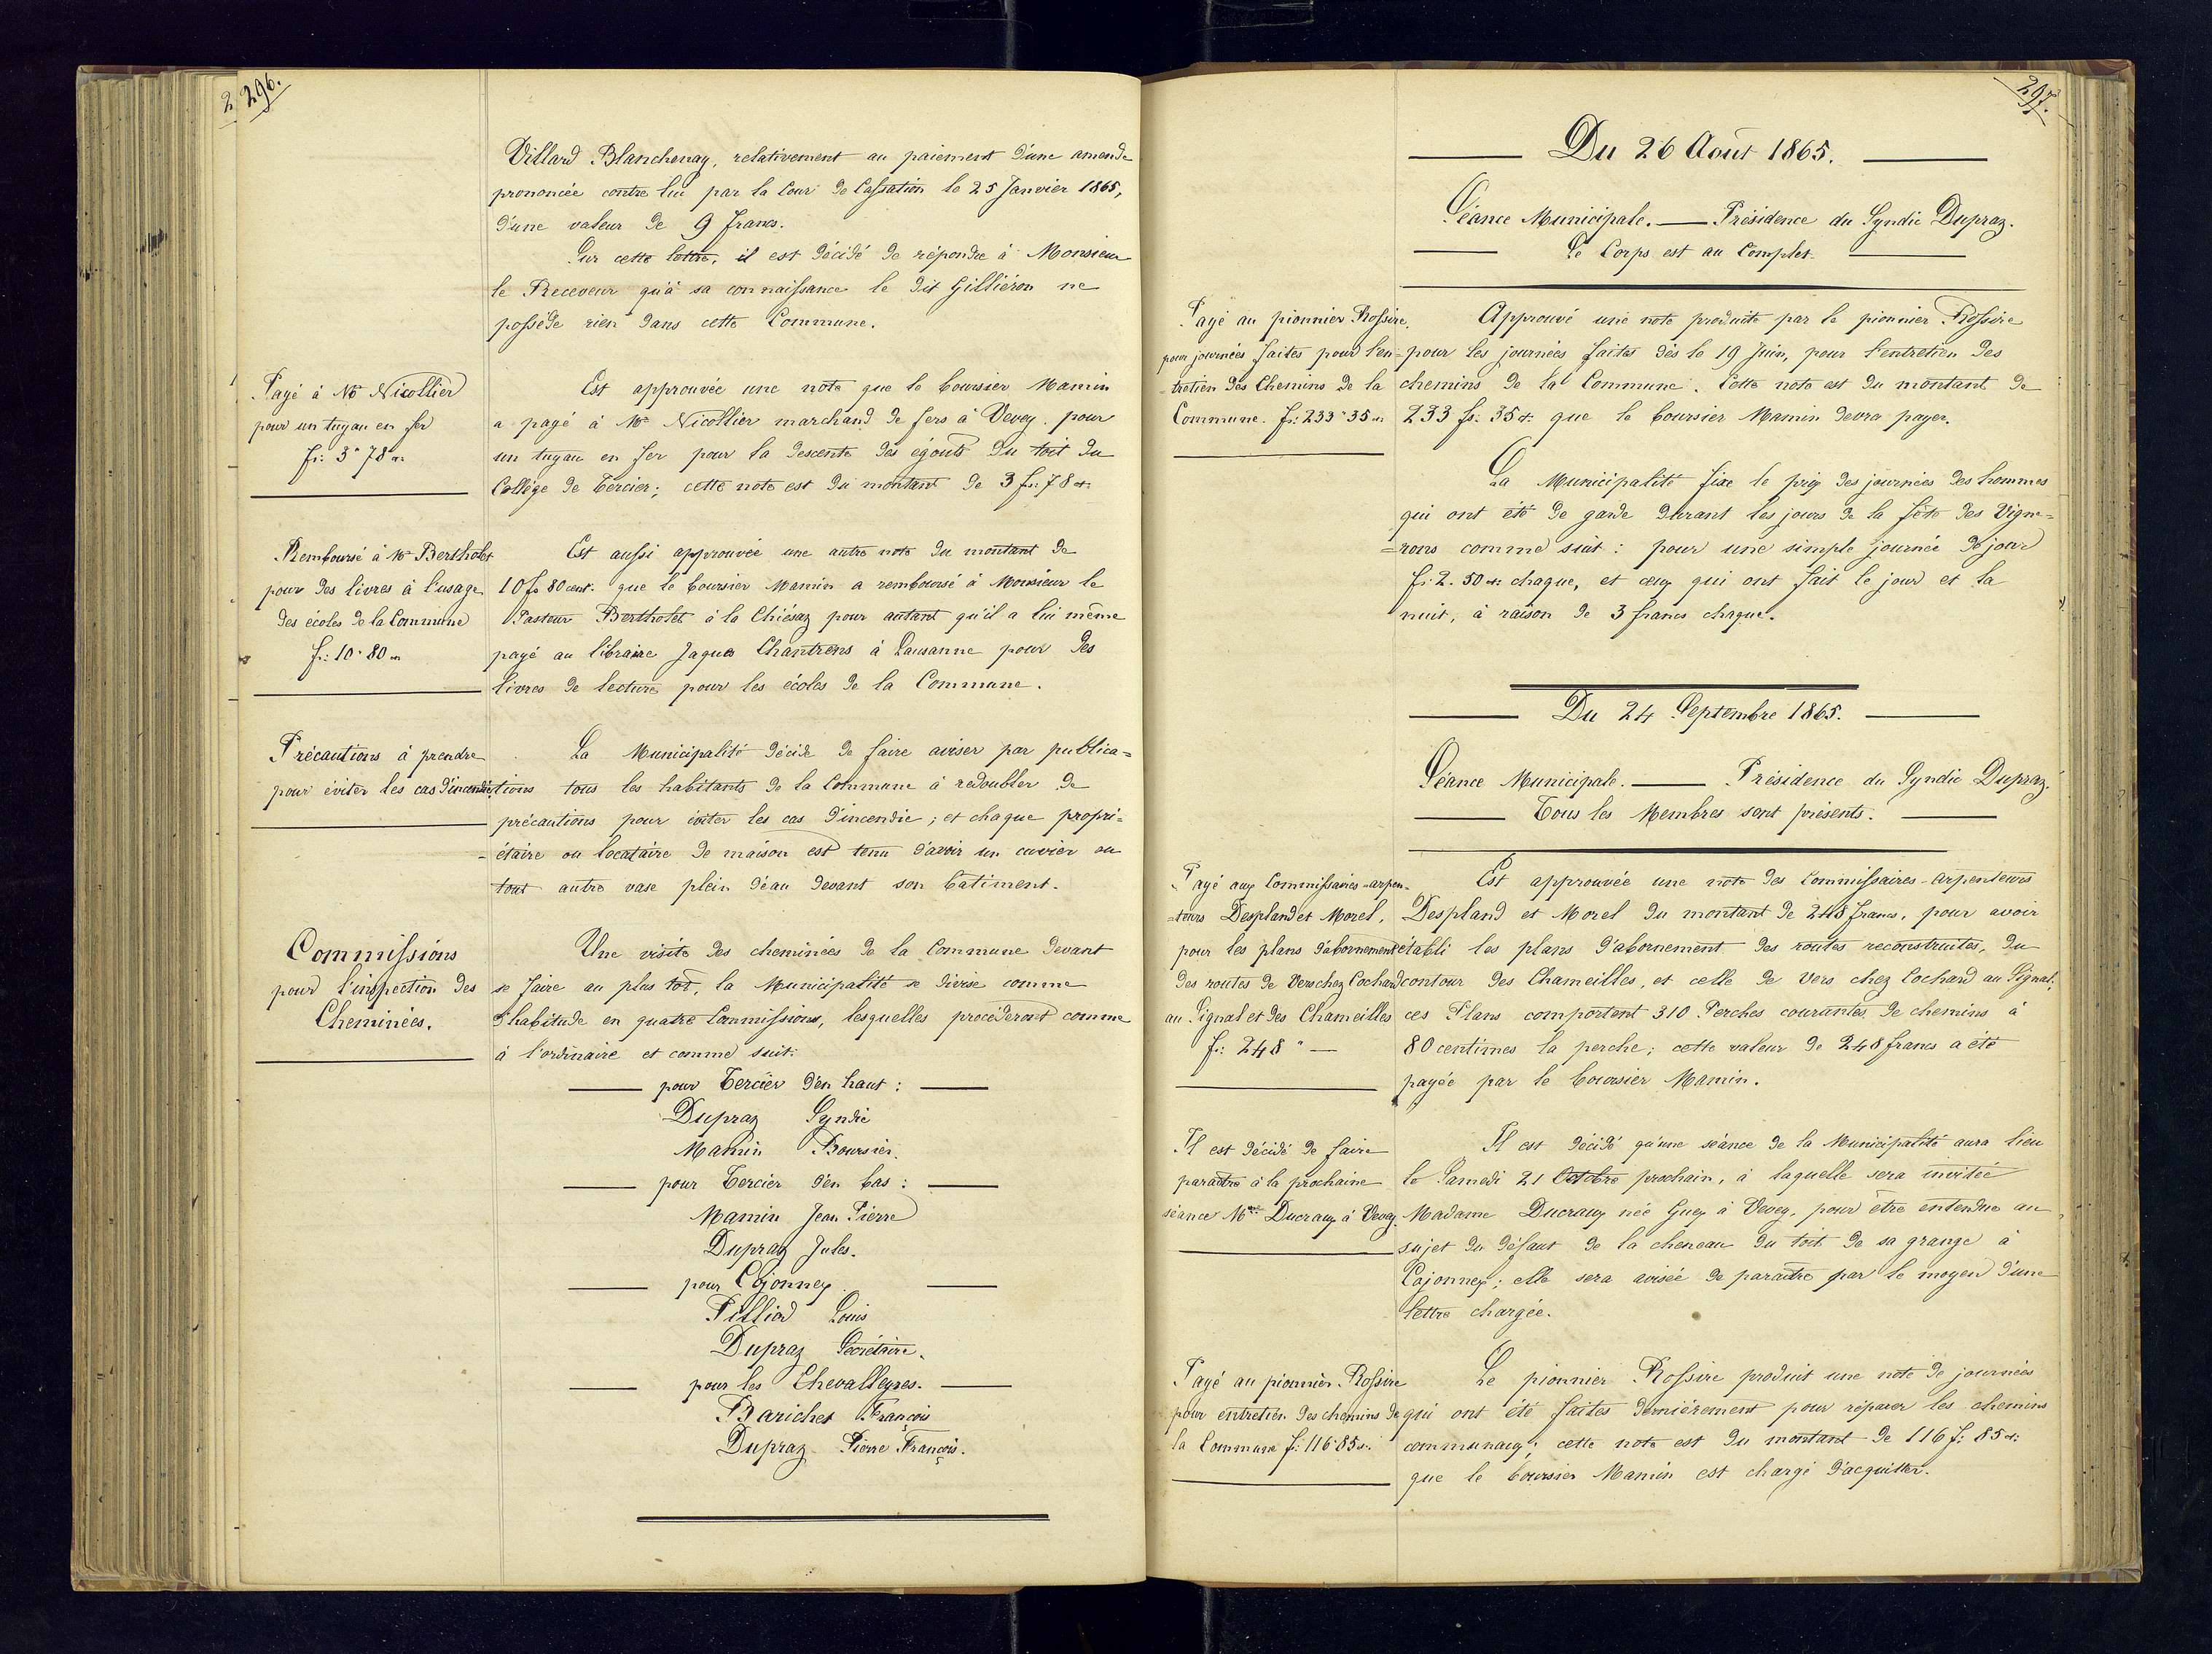 296.
Villard Blanchenay, relativement au paiement d'une amende
prononcée contre lui par la Cour de Cassation le 25 Janvier 1865,
d'une valeur de 9 francs.
Sur cette lettre, il est décidé de répondre à Monsieur
le Receveur qu'à sa connaissance le dit Gilliéron ne
possède rien dans cette Commune.
Payé à Mr Nicollier
pour un tuyau en fer
fr: 3" 78 ct.
Est approuvée une note que le boursier Mamin
a payé à Mr Nicollier marchand de fers à Vevey pour
un tuyau en fer pour la descente des égouts du toit du
Collège de Tercier; cette note est du montant de 3 fr: 78 ct.
Remboursé à Mr Bertholet
pour des livres à l'usage
des écoles de la Commune
fr: 10" 80 ct.
Est aussi approuvée une autre note du montant de
10 fr 80 cent. que le boursier Mamin a remboursé à Monsieur le
Pasteur Bertholet à la Chiésaz pour autant qu'il a lui même
payé au libraire Jaques Chantrens à Lausanne pour des
livres de lecture pour les écoles de la Commune.
Précautions à prendre
pour éviter les cas d'incendie.
La Municipalité décide de faire aviser par publica=
tions tous les habitants de la Commune à redoubler de
précautions pour éviter les cas d'incendie; et chaque propri=
=étaire ou locataire de maison est tenu d'avoir un cuvier ou
tout autre vase plein d'eau devant son batiment.
Commissions
pour l'inspection des
Cheminées.
Une visite des cheminées de la Commune devant
se faire au plus tot, la Municipalité se divise comme
d'habitude en quatre Commissions, lesquelles procéderont comme
à l'ordinaire et comme suit:
pour Tercier d'en haut:
Dupraz Syndic
Mamin Boursier.
pour Tercier d'en bas:
Mamin Jean Pierre
Dupraz Jules.
pour Cojonnex
Pilliod Louis
Dupraz Secrétaire.
pour les Chevalleyres.
Barichet François
Dupraz Pierre François.
297.
Du 26 Août 1865.
Séance Municipale. — Présidence du Syndic Dupraz.
Le Corps est au Complet.
Payé au pionnier Rossire.
pour journées faites pour l'en=
=tretien des Chemins de la
Commune. fr: 233" 35 ct.
Approuvé une note produite par le pionnier Rossire
pour les journées faites dès le 19 Juin, pour l'entretien des
chemins de la Commune. Cette note est du montant de
233 fr. 35 ct. que le boursier Mamin devra payer.
La Municipalité fixe le prix des journées des hommes
qui ont été de garde durant les jours de la fête des Vigne=
=rons comme suit: pour une simple journée de jour
fr: 2. 50 ct. chaque, et ceux qui ont fait le jour et la
nuit, à raison de 3 francs chaque.
Du 24 Septembre 1865.
Séance Municipale. — Présidence du Syndic Dupraz.
Tous les Membres sont présents.
Payé aux Commissaires-arpen=
=teurs Despland et Morel,
pour les plans d'abornement
des routes de Vers chez Cochard
au Signal et des Chameilles
fr: 248 " —
Est approuvée une note des Commissaires-Arpenteurs
Despland et Morel du montant de 248 francs, pour avoir
établi les plans d'abornement des routes reconstruites, du
contour des Chameilles, et celle de Vers chez Cochard au Signal;
ces Plans comportent 310 Perches courantes de chemins à
80 centimes la perche; cette valeur de 248 francs a été
payée par le boursier Mamin.
Il est décidé de faire
paraître à la prochaine
séance Mme Ducraux à Vevey.
Il est décidé qu'une séance de la Municipalité aura lieu
le Samedi 21 Octobre prochain, à laquelle sera invitée
Madame Ducraux née Guex à Vevey, pour être entendue au
sujet du défaut de la cheneau du toit de sa grange à
Cojonnex; elle sera avisée de paraître par le moyen d'une
lettre chargée.
Payé au pionnier Rossire
pour entretien des chemins de
la Commune fr: 116" 85 ct.
Le pionnier Rossire produit une note de journées
qui ont été faites dernièrement pour réparer les chemins
communaux; cette note est du montant de 116 f: 85 ct.
que le boursier Mamin est chargé d'acquitter.